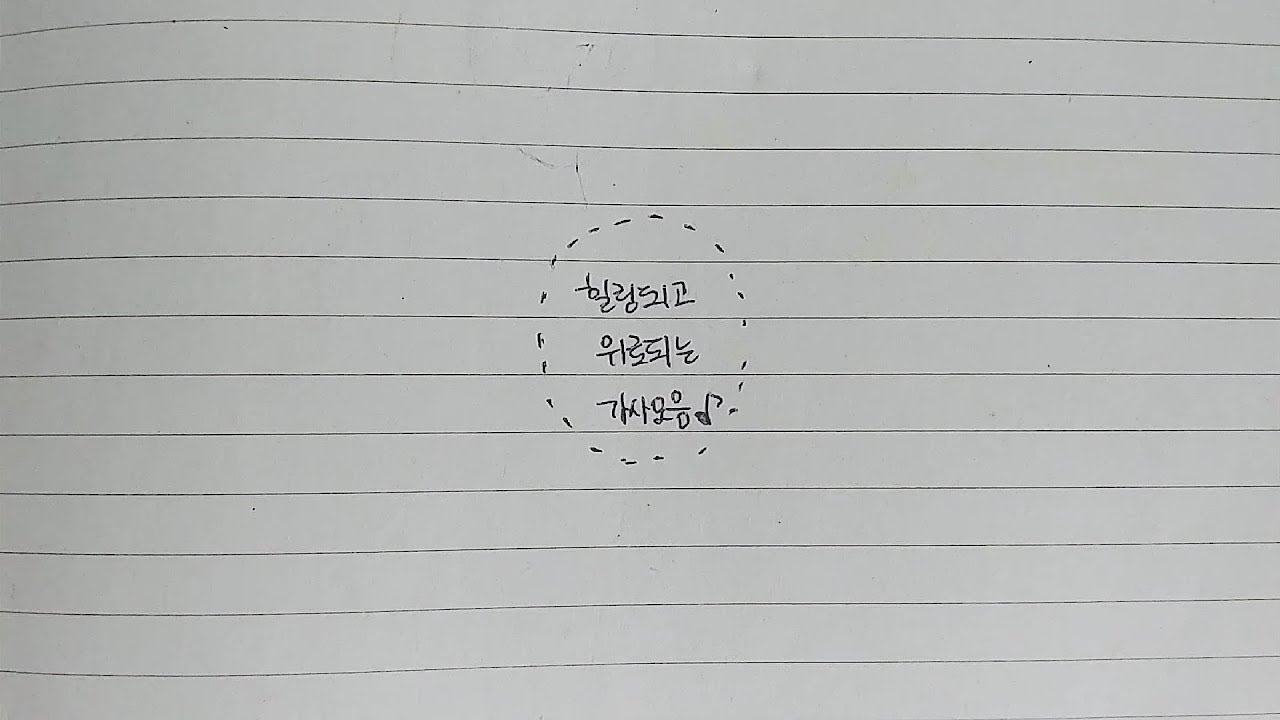 힐링되고
위로되는
가사모음♪